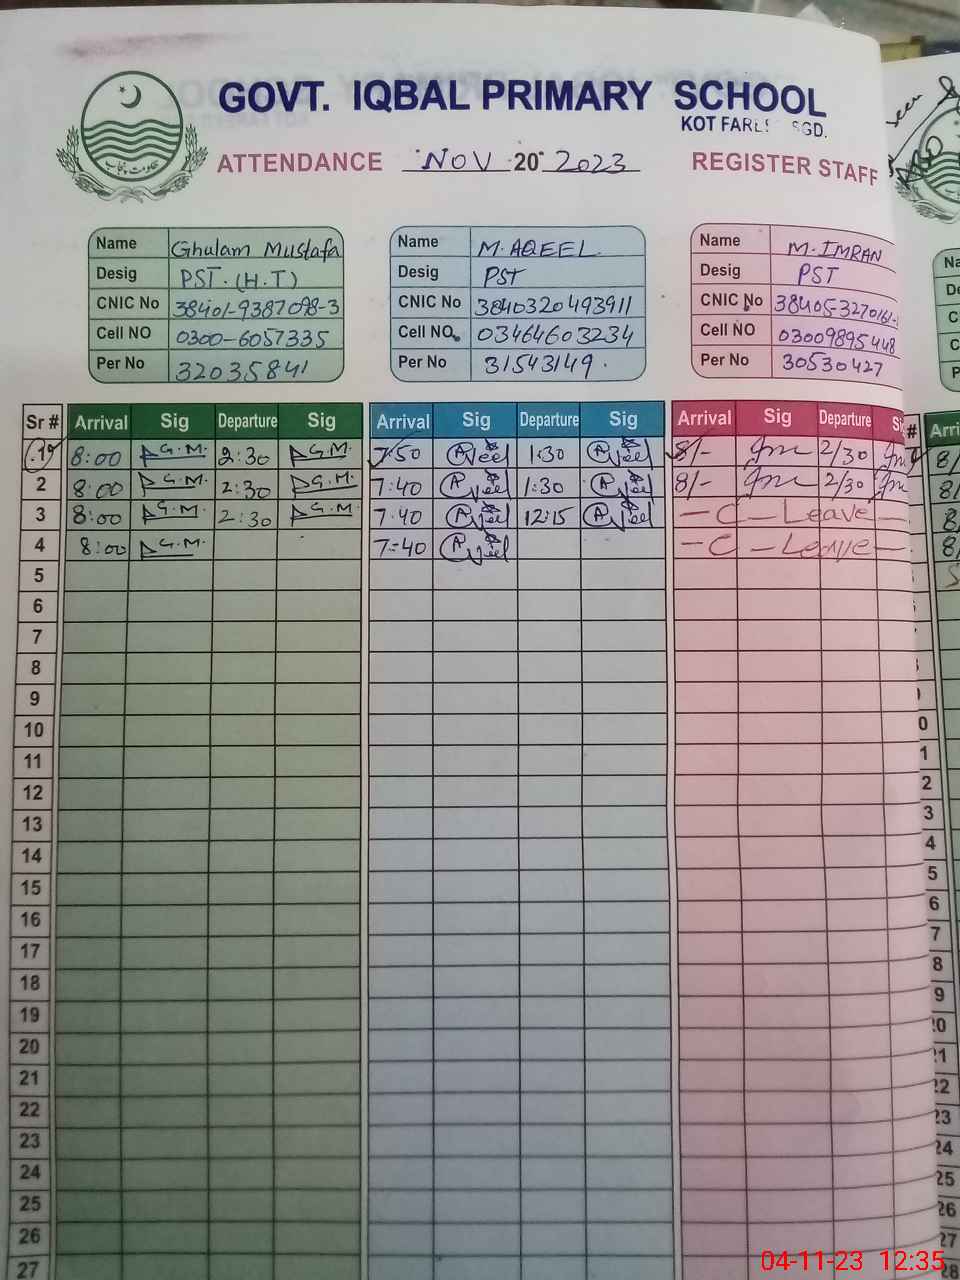 GOVT. IQBAL PRIMARY SCHOOL
KOT FARE SGD.
ATTENDANCE NOV 20 2023 REGISTER STAFF
حکومت پنجاب
Name Ghulam Mustafa
Desig PST.(H.T)
CNIC No 38401-9387098-3
Cell NO 0300-6057335
Per No 32035841
Name M.AQEEL
Desig PST
CNIC No 3840320493911
Cell NO. 03464603234
Per No 31543149.
Name M.IMRAN
Desig PST
CNIC No 38405-3270161-
Cell NO 03009895448
Per No 30530427
Sr # Arrival Sig Departure Sig Arrival Sig Departure Sig Arrival Sig Departure
1 8:00 G.M. 2:30 G.M. 7:50 Aqeel 1:30 Aqeel 8/- Im 2/30 Im
2 8:00 G.M. 2:30 G.M. 7:40 Aqeel 1:30 Aqeel 8/- Im 2/30 Im
3 8:00 G.M. 2:30 G.M. 7:40 Aqeel 12:15 Aqeel - C - Leave -
4 8:00 G.M. 7:40 Aqeel - C - Leave -
5
6
7
8
9
10
11
12
13
14
15
16
17
18
19
20
21
22
23
24
25
26
27
04-11-23 12:35